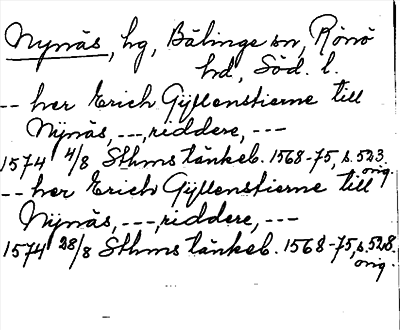 Nynäs, hg, Bälinge sn, Rönö
hd, Söd. l.
-- her Erich Gyllenstierne till
Nÿnäs, ---, riddere, ---
1574 4/8 Sthms tänkeb. 1568-75, s. 523.
orig.
-- her Erich Gÿllenstierne till
Nÿnäs, ---, riddere, ---
1574 28/8 Sthms tänkeb. 1568-75, s. 528.
orig.